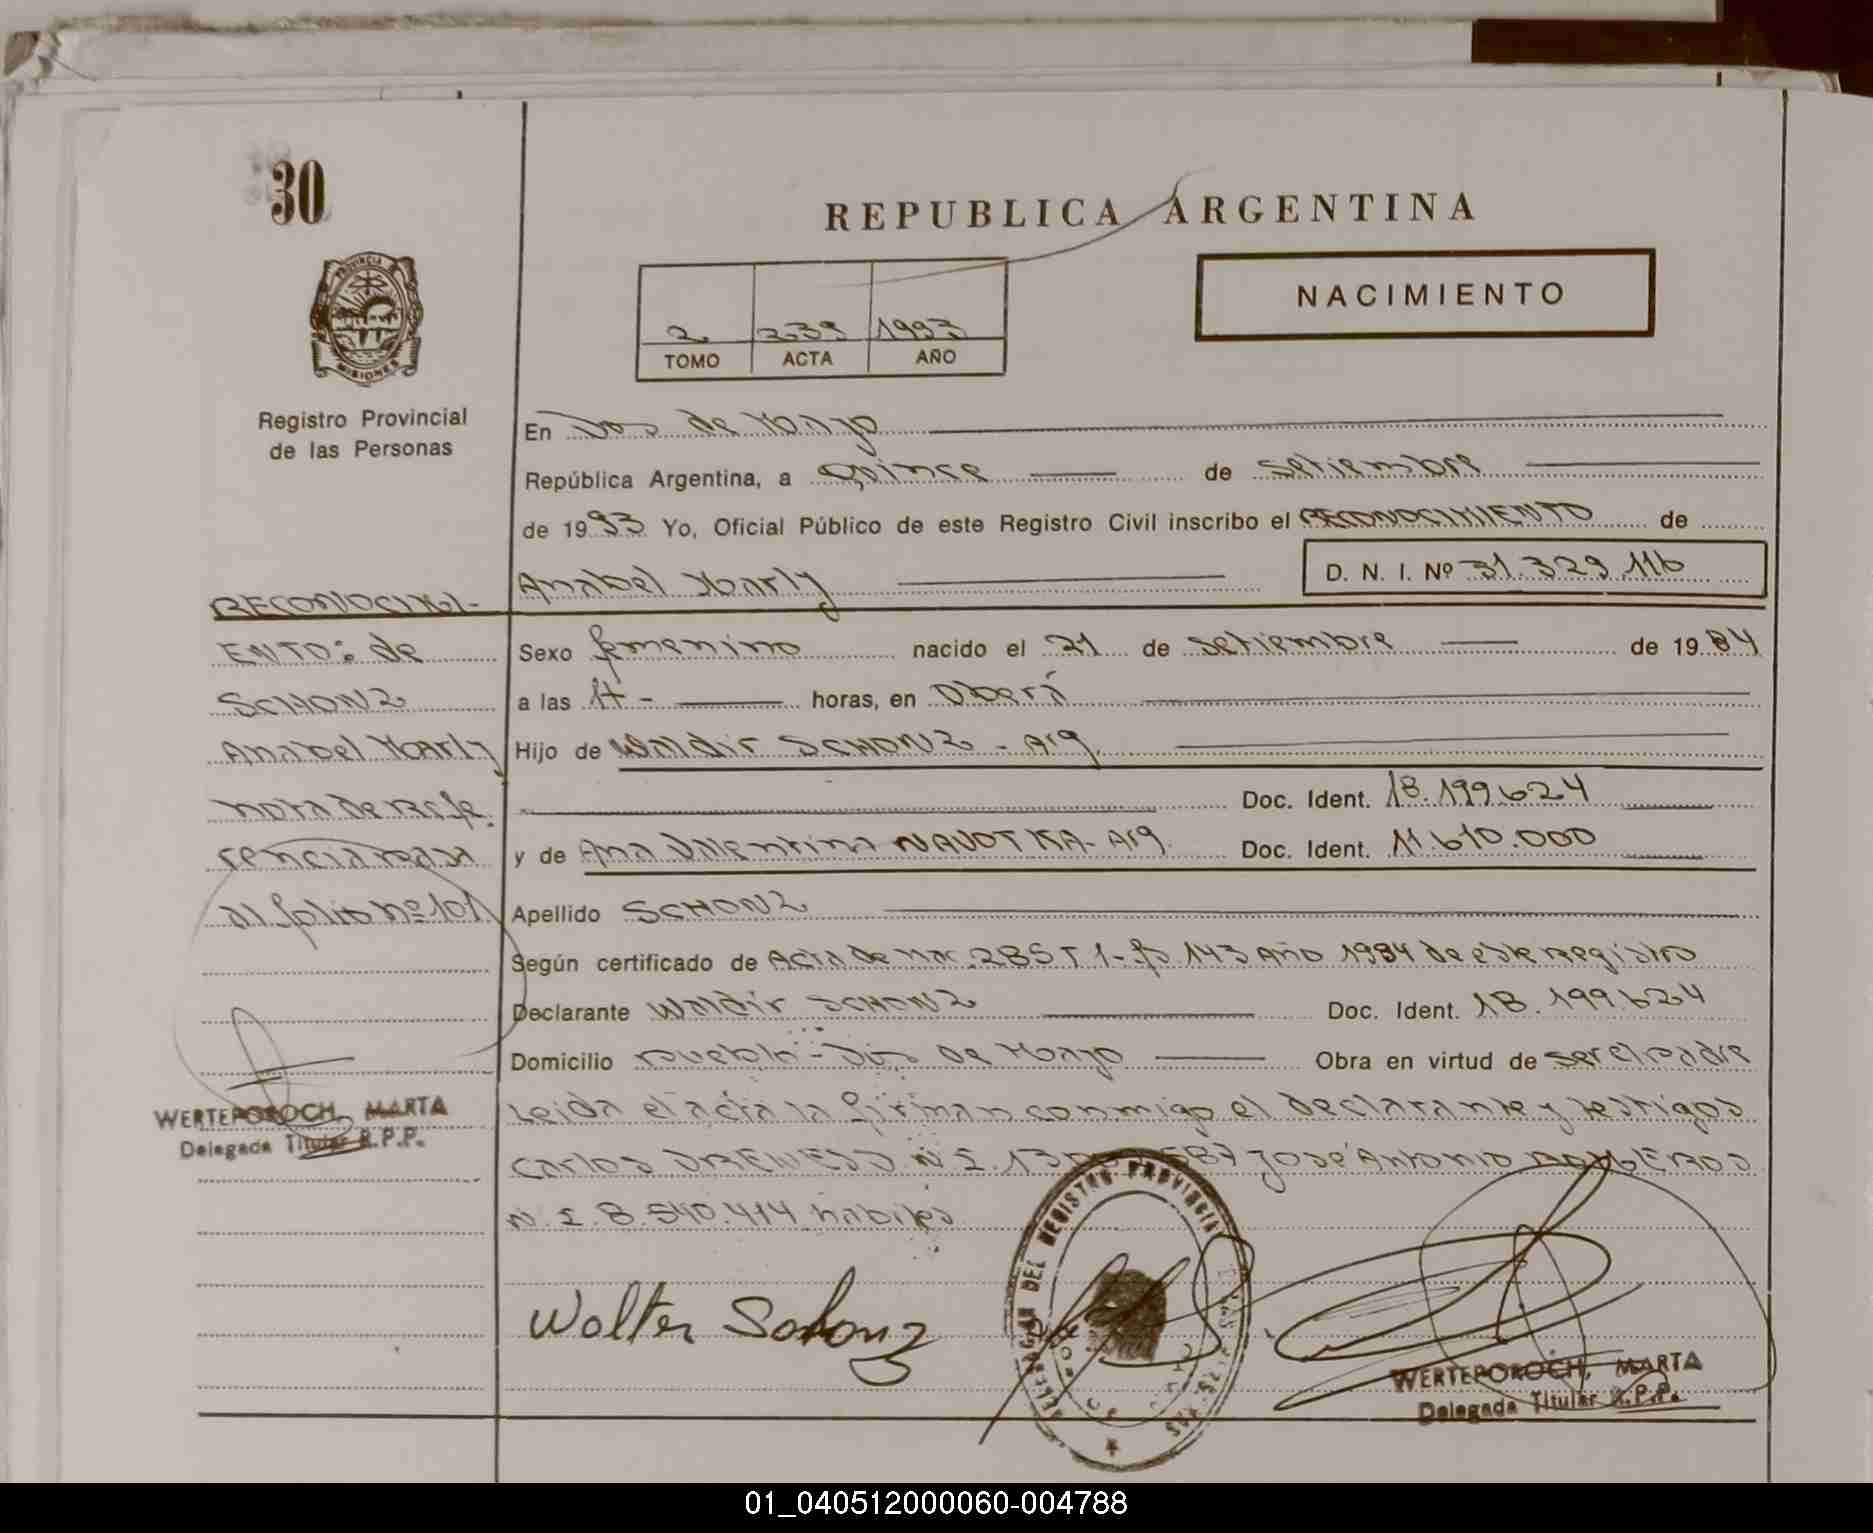 30
REPUBLICA ARGENTINA
NACIMIENTO
2 239 1993
TOMO ACTA AÑO
PROVINCIA
MISIONES
Registro Provincial
de las Personas
En Dos de Mayo
República Argentina, a Quince de Setiembre
de 1993 Yo, Oficial Público de este Registro Civil inscribo el RECONOCIMIENTO de
Anabel Yharly D. N. I. Nº 31.329.116
Sexo femenino nacido el 21 de Setiembre de 1984
a las horas, en Oberá
Hijo de Waldir SCHONZ - Arg.
Doc. Ident. 18.199.624
y de Ana Valentina Arg. Doc. Ident. 11.610.000
Apellido SCHONZ
Según certificado de Acta de Nac. 285 T 1 - fº 143 Año 1984 de este Registro
Declarante Waldir SCHONZ Doc. Ident. 18.199.624
Domicilio Pueblo - Dos de Mayo Obra en virtud de ser el padre
Leida el acta la firman conmigo el declarante y testigos
Carlos 587 José Antonio
N I. 8.540.414 habiles
Walter Schonz
RECONOCIMI-
ENTO: de
SCHONZ
Anabel Yharly
nota de refe
rencia
al folio Nº 101
WERTEPOROCH, MARTA
Delegada Titular R.P.P.
WERTEPOROCH, MARTA
Delegada Titular R.P.P.
01_040512000060-004788